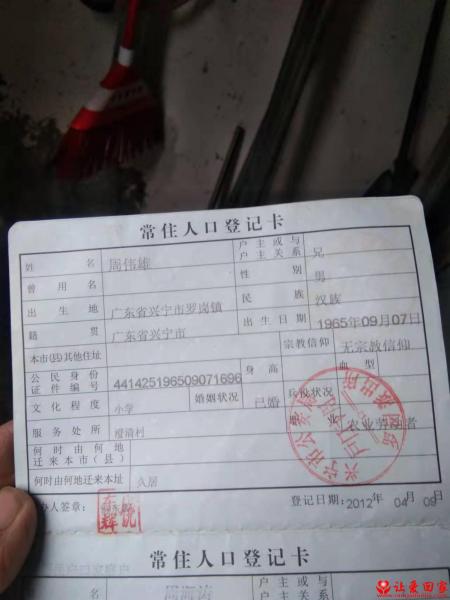 常住人口登记卡
姓名 周伟雄 户主或与户主关系 兄
曾用名 性别 男
出生地 广东省兴宁市罗岗镇 民族 汉族
籍贯 广东省兴宁市 出生日期 1965年09月07日
本市(县)其他住址 宗教信仰 无宗教信仰
公民身份证件编号 441425196509071696 身高 血型
文化程度 小学 婚姻状况 已婚 兵役状况
服务处所 澄清村 职业 农业劳动者
何时由何地迁来本市(县)
何时由何地迁来本址 久居
办人签章: 登记日期:2012年 04月 09日
常住人口登记卡
周海涛 户主或与
让爱回家